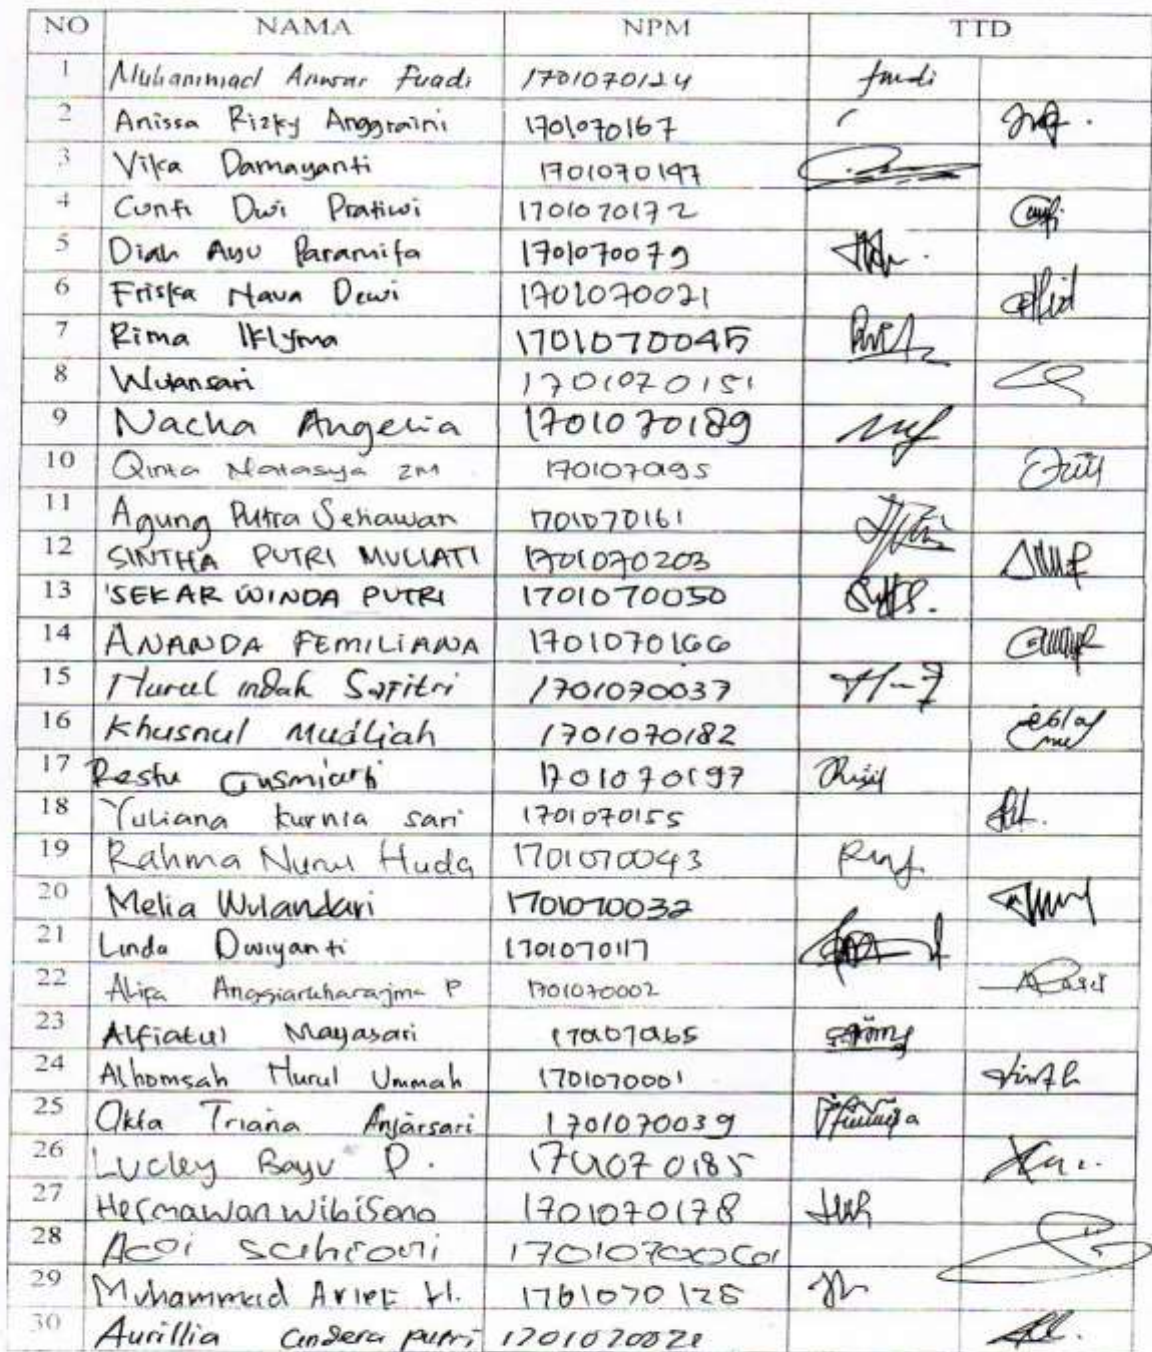 NO NAMA NPM TTD
1 Muhammad Anwar Fuadi 1701070124 fuadi
2 Anissa Rizky Anggraini 1701070167
3 Vika Damayanti 1701070147
4 Cunti Dwi Pratiwi 1701070172
5 Diah Ayu Paramita 1701070079
6 Friska Nava Dewi 1701070021
7 Rima Iklyma 1701070045
8 Wulansari 1701070151
9 Nacha Angelia 1701070189
10 Qinta Natasya ZM
11 Agung Putra Setiawan 1701070161
12 SINTHA PUTRI MULIATI 1701070203
13 SEKAR WINDA PUTRI 1701070050
14 ANANDA FEMILIANA 1701070166
15 Nurul indah Safitri 1701070037
16 Khusnul Mudliah 1701070182
17 Restu Gusmiarti 1701070197
18 Yuliana kurnia sari 1701070155
19 Rahma Nurul Huda 1701070043
20 Melia Wulandari 1701070032
21 Linda Dwiyanti 1701070117
22 Alifa P 1701070002
23 Alfiatul Mayasari
24 Alhomsah Nurul Ummah 1701070001
25 Okta Triana Anjarsari 1701070039
26 Lucky Bayu P.
27 Hermawan Wibisono 1701070178
28
29 Muhammad Arief H.
30 Aurillia putri